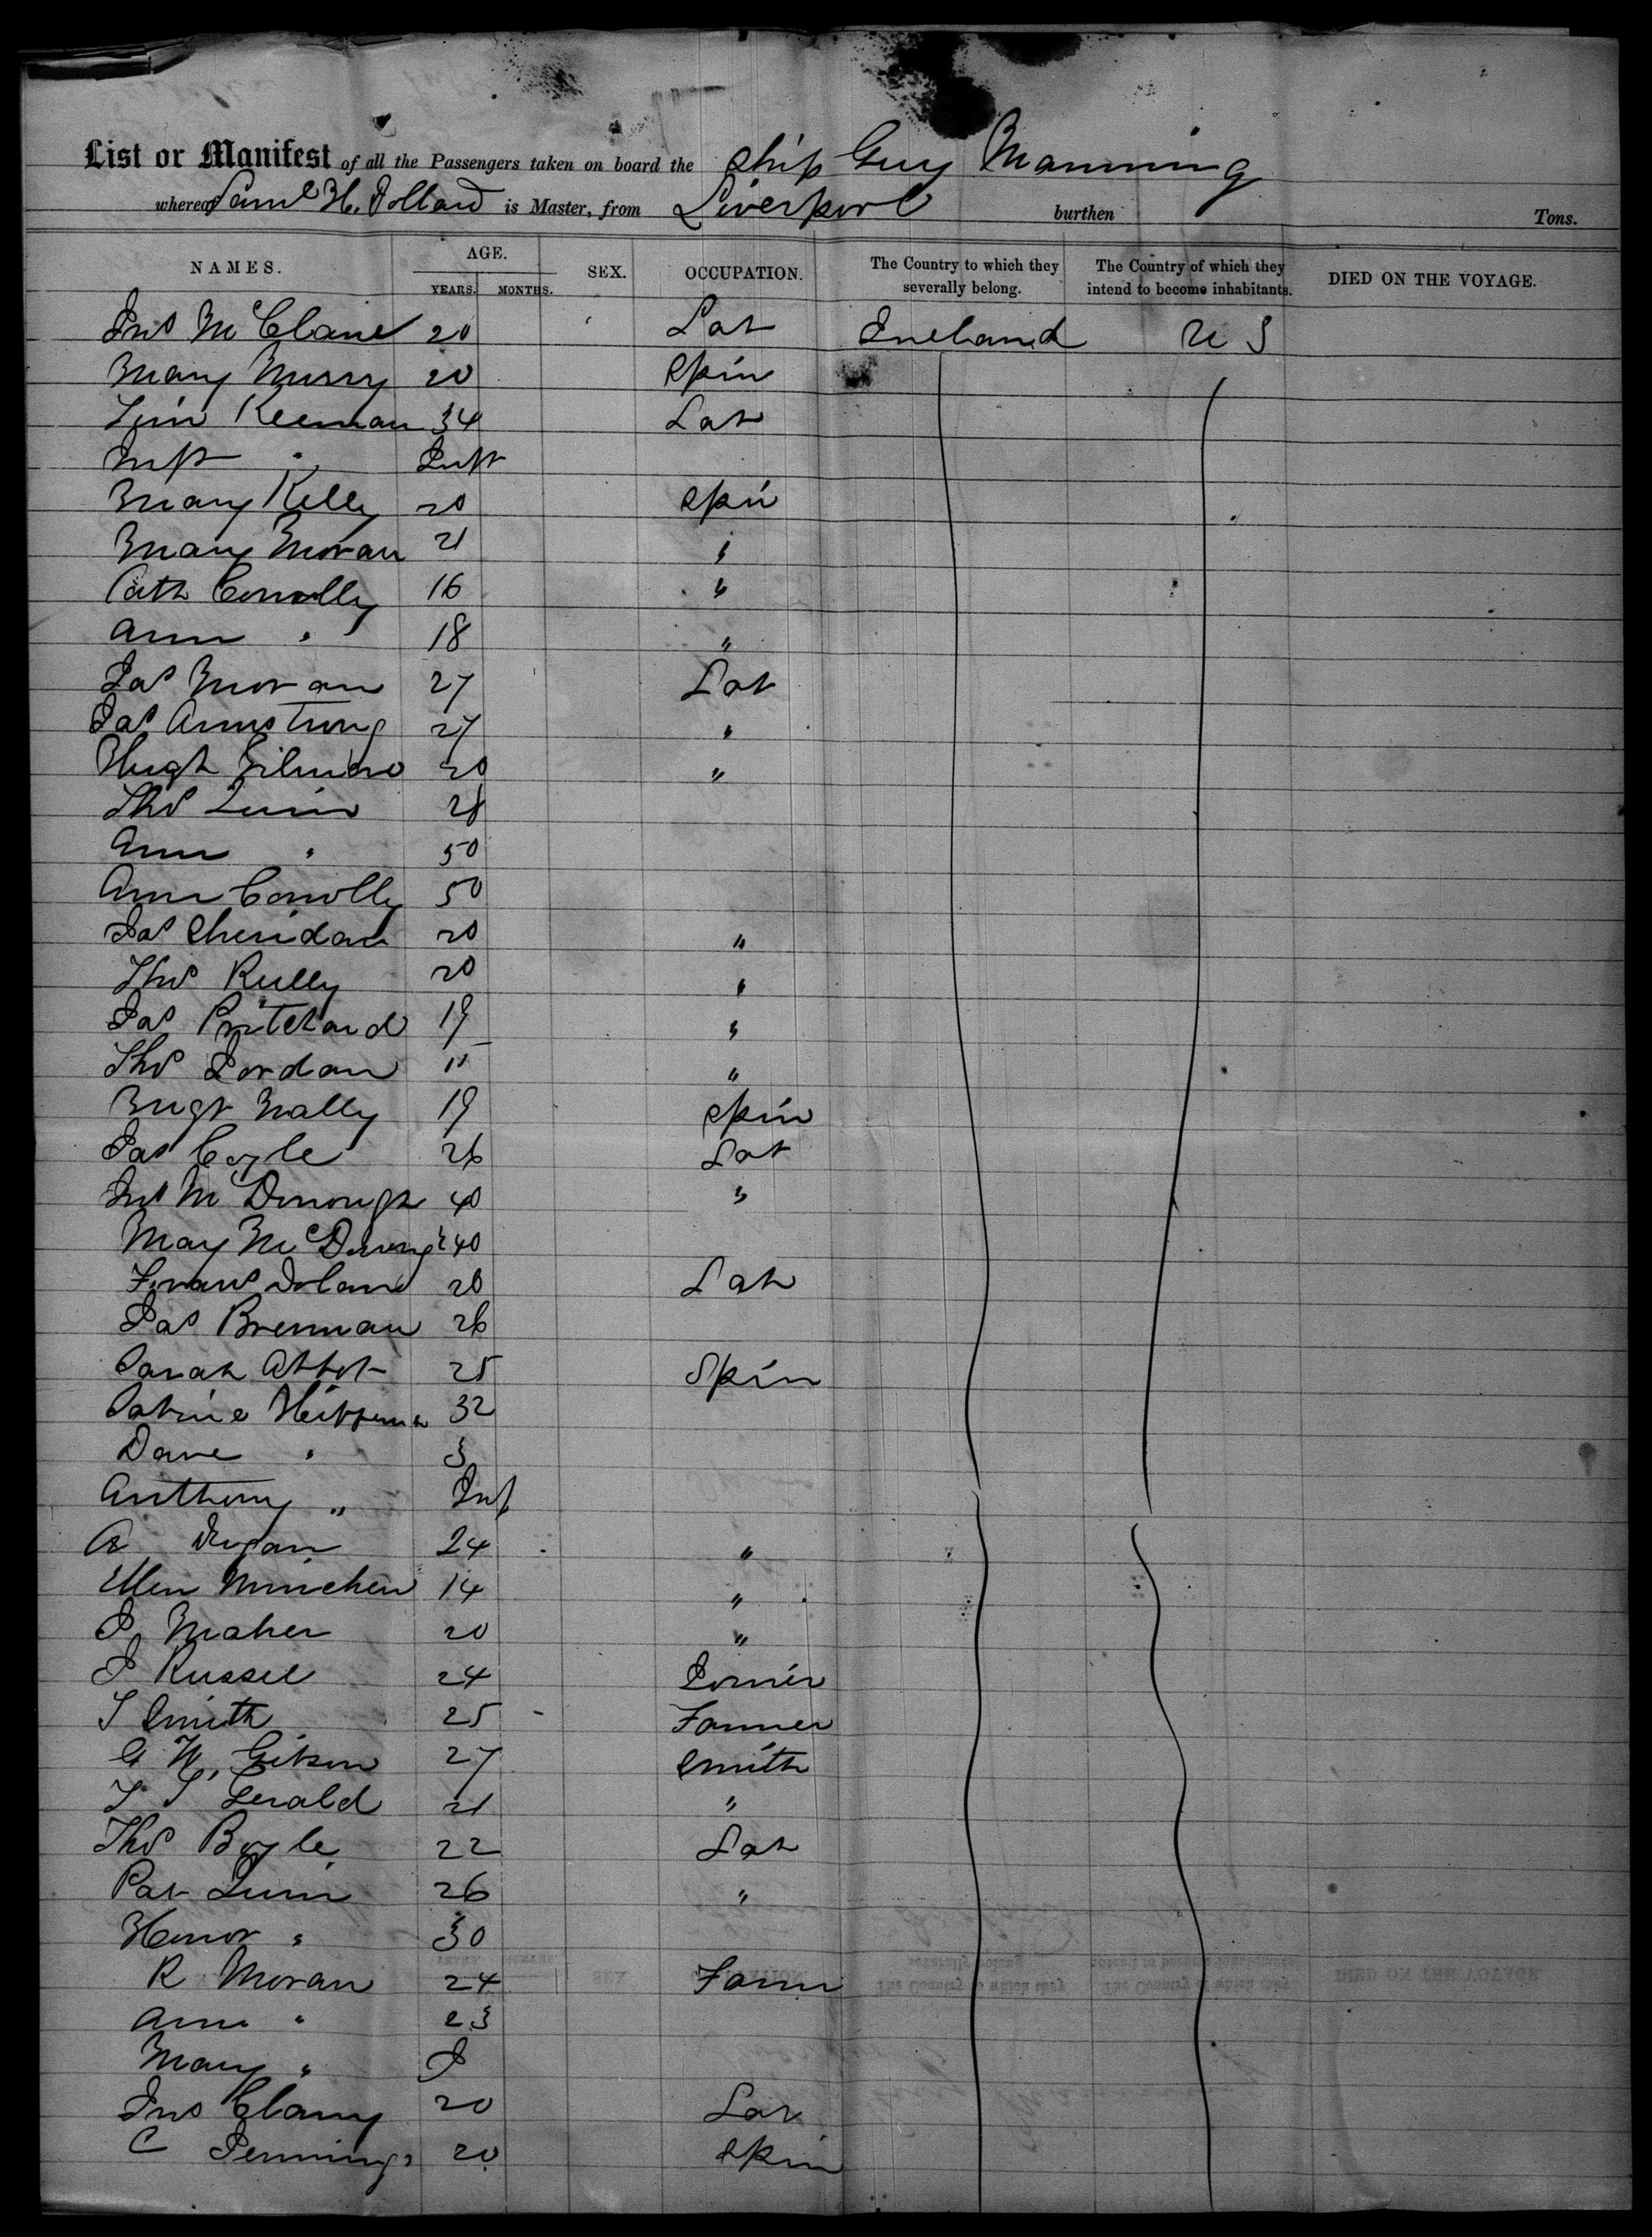 List or Manifest of all the Passengers taken on board the Ship Guy Mannring
whereof Saml H. Pollard is Master, from Liverpool burthen Tons.
NAMES. AGE. YEARS. MONTHS. SEX. OCCUPATION. The Country to which they severally belong. The Country of which they intend to become inhabitants. DIED ON THE VOYAGE.
Jno McClane 20 Lab Ireland U S
Mary Murry 20 Spin
Keenan 34 Lab
Inft " Inft
Mary Kelly 20 Spin
Mary Moran 21 "
Cath Conolly 16 "
Ann " 18 "
Jas Moran 27 Lab
Jas Armstrong 27 "
Hugh Gilmore 30 "
Thos Quin 28
Ann " 50
Ann Conolly 50
Jas Sheridan 20 "
Thos Reilly 20 "
Jas Pritchard 19 "
Thos Jordan 11 "
Brigt Nally 19 Spin
Jas Coyle 26 Lab
Jno McDonough 40 "
Mary McDonough 40
Frans Dolan 20 Lab
Jas Brennan 26
Sarah Abbot 25 Spin
Heffernan 32
Dave " 3
Anthony " Inf
A Dugan 24 "
Ellen Minchen 14 "
P Maher 20 "
J Russel 24 Joiner
T Smith 25 Farmer
G W. Gibson 27 Smith
T F Gerald 21 "
Thos Boyle 22 Lab
Pat Quin 26 "
Honor " 30
R Moran 24 Farm
Ann " 23
Mary " I
Jno Clancy 20 Lab
C Jennings 20 Spin